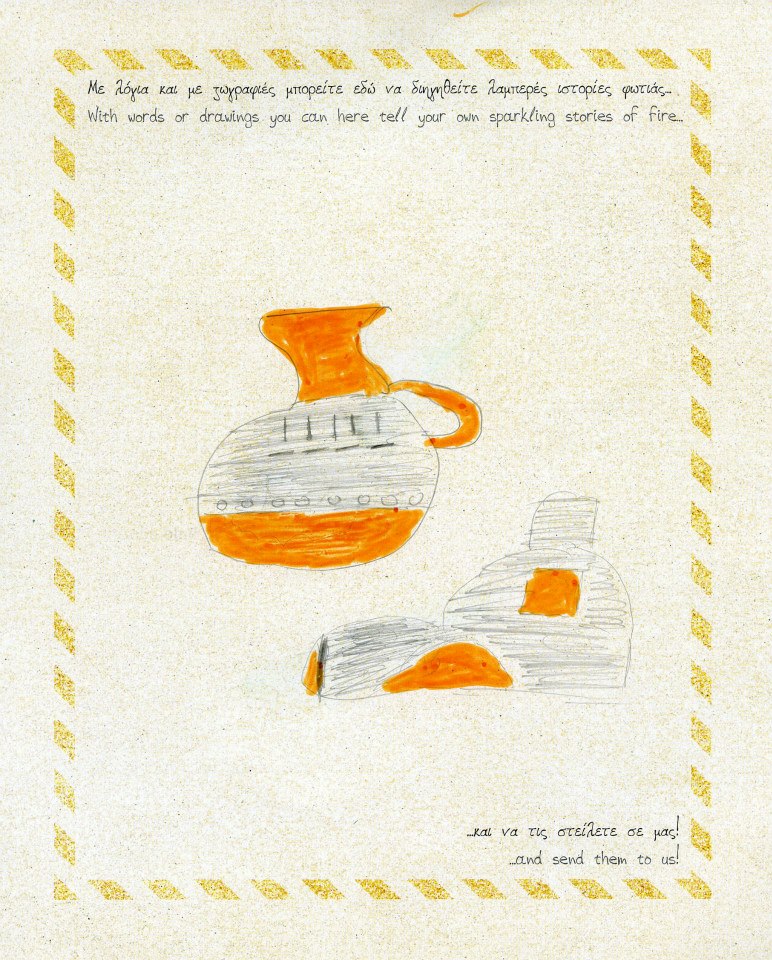 Με λόγια και με ζωγραφιές μπορείτε εδώ να διηγηθείτε λαμπερές ιστορίες φωτιάς...
With words or drawings you can here tell your own sparkling stories of fire...
...και να τις στείλετε σε μας!
...and send them to us!